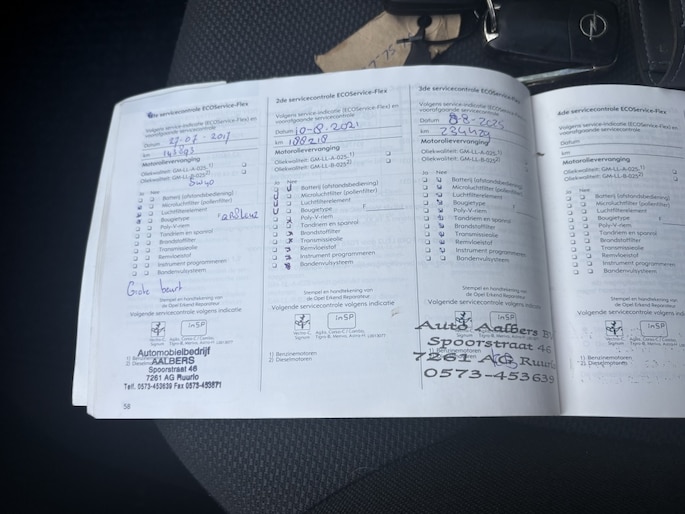 1e servicecontrole ECOService-Flex
Volgens service-indicatie (ECOService-Flex) en
voorafgaande servicecontrole
Datum 27-07-2017
km
Motorolievervanging
Oliekwaliteit: GM-LL-A-025 1)
Oliekwaliteit: GM-LL-B-025 2)
5W40
Ja Nee
Batterij (afstandsbediening)
Microluchtfilter (pollenfilter)
Luchtfilterelement
Bougietype
Poly-V-riem
Tandriem en spanrol
Brandstoffilter
Transmissieolie
Remvloeistof
Instrument programmeren
Bandenvulsysteem
Grote beurt
Stempel en handtekening van
de Opel Erkend Reparateur
Volgende servicecontrole volgens indicatie
InSP
Vectra-C,
Signum
Agila, Corsa-C / Combo,
Tigra-B, Meriva, Astra-H
1) Benzinemotoren
2) Dieselmotoren
Automobielbedrijf
AALBERS
Spoorstraat 46
7261 AG Ruurlo
Telf. 0573-453639 Fax 0573-453671
58
2de servicecontrole ECOService-Flex
Volgens service-indicatie (ECOService-Flex) en
voorafgaande servicecontrole
Datum 10-8-2021
km 188218
Motorolievervanging
Oliekwaliteit: GM-LL-A-025 1)
Oliekwaliteit: GM-LL-B-025 2)
Ja Nee
Batterij (afstandsbediening)
Microluchtfilter (pollenfilter)
Luchtfilterelement
Bougietype
Poly-V-riem
Tandriem en spanrol
Brandstoffilter
Transmissieolie
Remvloeistof
Instrument programmeren
Bandenvulsysteem
Stempel en handtekening van
de Opel Erkend Reparateur
Volgende servicecontrole volgens indicatie
InSP
Vectra-C,
Signum
Agila, Corsa-C / Combo,
Tigra-B, Meriva, Astra-H
1) Benzinemotoren
2) Dieselmotoren
3de servicecontrole ECOService-Flex
Volgens service-indicatie (ECOService-Flex) en
voorafgaande servicecontrole
Datum
km 234429
Motorolievervanging
Oliekwaliteit: GM-LL-A-025 1)
Oliekwaliteit: GM-LL-B-025 2)
Ja Nee
Batterij (afstandsbediening)
Microluchtfilter (pollenfilter)
Luchtfilterelement
Bougietype
Poly-V-riem
Tandriem en spanrol
Brandstoffilter
Transmissieolie
Remvloeistof
Instrument programmeren
Bandenvulsysteem
Stempel en handtekening van
de Opel Erkend Reparateur
Volgende servicecontrole volgens indicatie
InSP
Auto Aalbers
Spoorstraat 46
7261 AG Ruurlo
0573-453639
4de servicecontrole ECOService-Flex
Volgens service-indicatie (ECOService-Flex) en
voorafgaande servicecontrole
Datum
km
Motorolievervanging
Oliekwaliteit: GM-LL-A-025 1)
Oliekwaliteit: GM-LL-B-025 2)
Ja Nee
Batterij (afstandsbediening)
Microluchtfilter (pollenfilter)
Luchtfilterelement
Bougietype
Poly-V-riem
Tandriem en spanrol
Brandstoffilter
Transmissieolie
Remvloeistof
Instrument programmeren
Bandenvulsysteem
Stempel en handtekening van
de Opel Erkend Reparateur
Volgende servicecontrole volgens indicatie
InSP
1) Benzinemotoren
2) Dieselmotoren